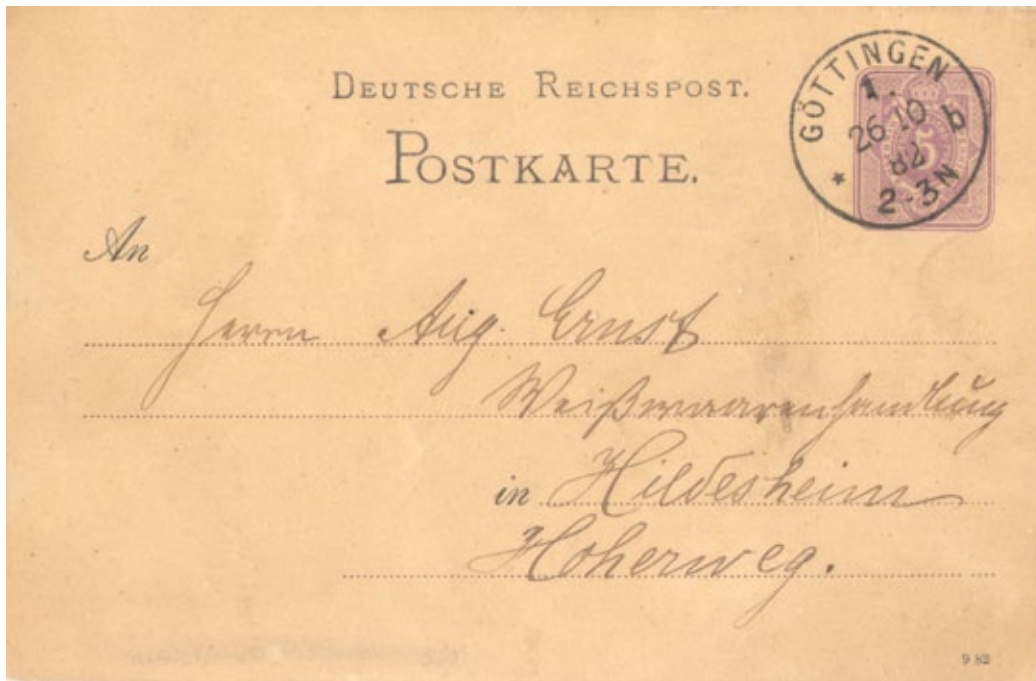 DEUTSCHE REICHSPOST.
POSTKARTE.
GÖTTINGEN
1.
26 10 b
82
* 2-3N
5
An
Herrn Aug. Ernst
Weißwaarenhandlung
in Hildesheim
Hoherweg.
9 82